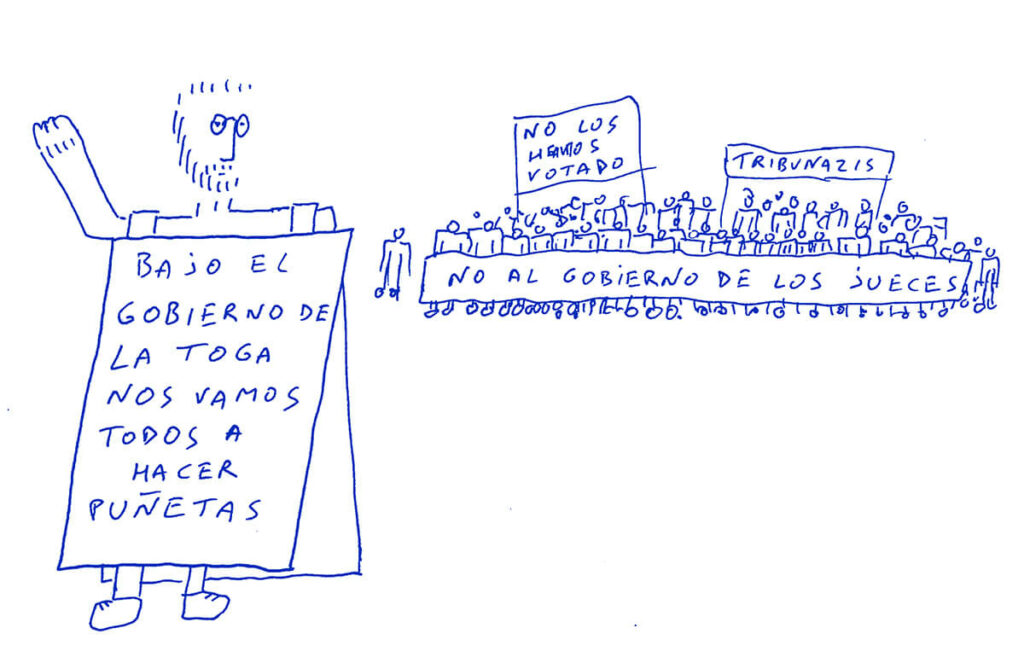 BAJO EL
GOBIERNO DE
LA TOGA
NOS VAMOS
TODOS A
HACER
PUÑETAS
NO LOS
HEMOS
VOTADO
TRIBUNAZIS
NO AL GOBIERNO DE LOS JUECES